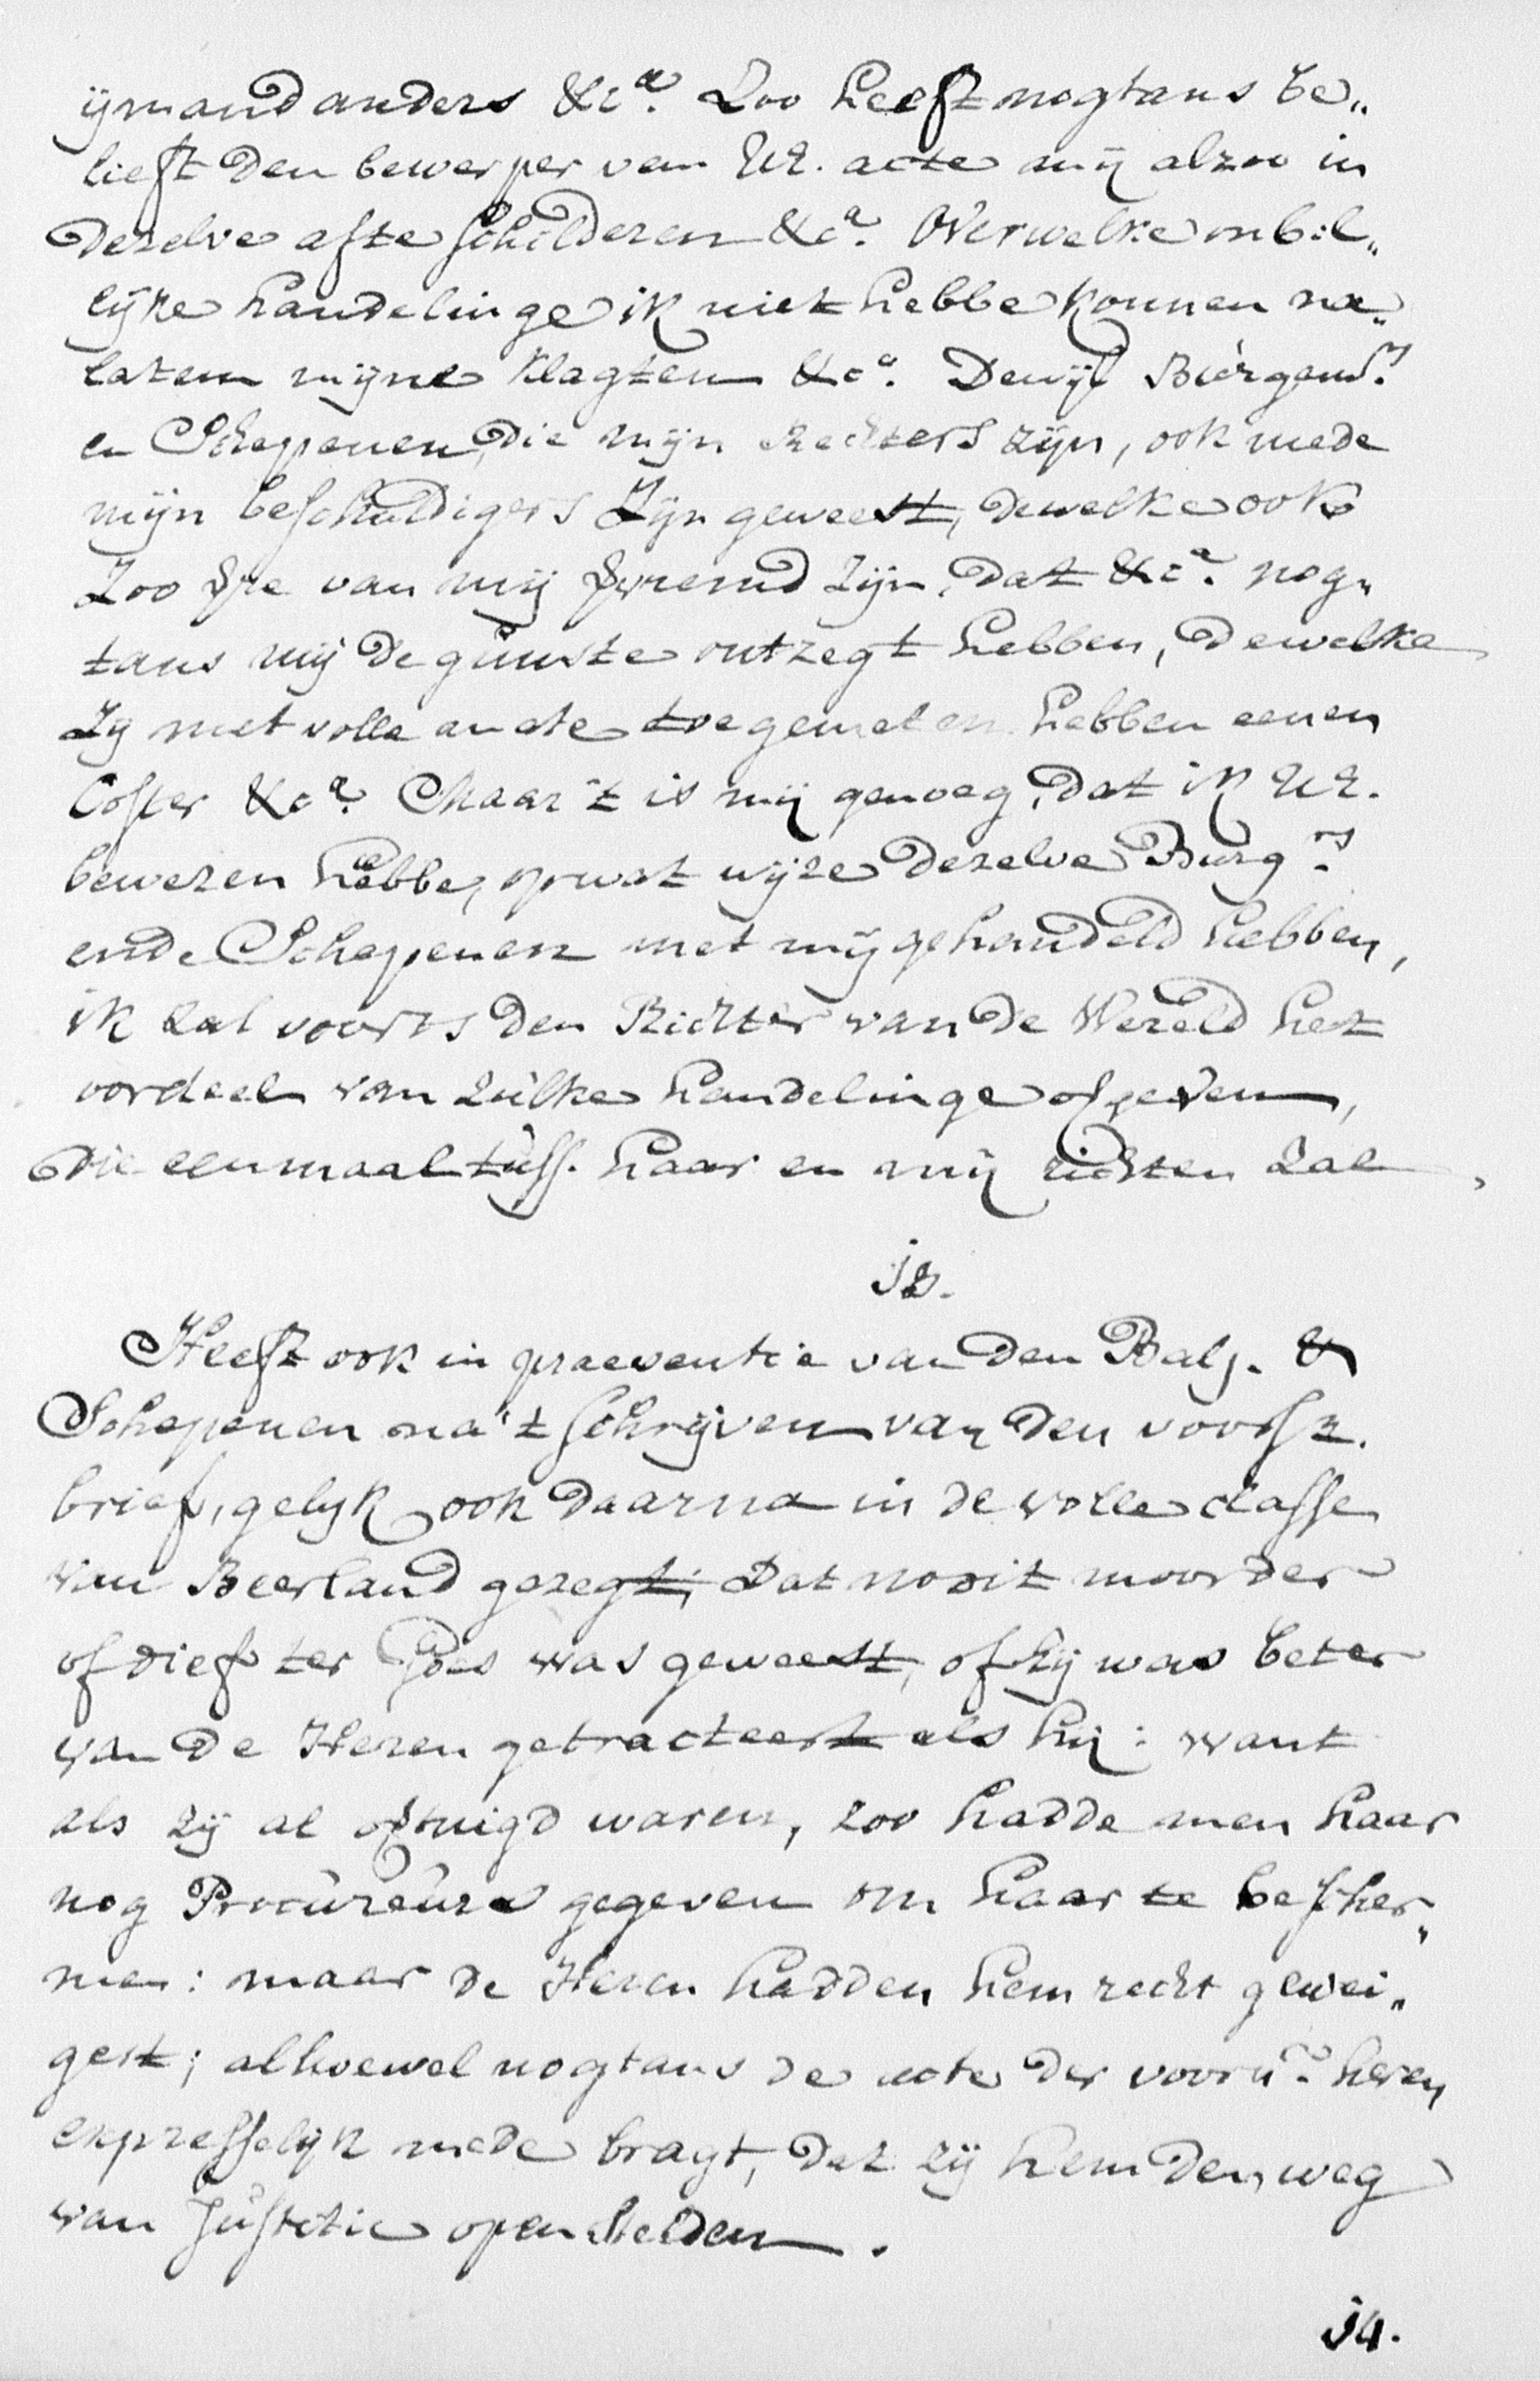 ijmand anders &cª. Zoo heeft nogtans be„
lieft den bewerper van UE. acte mij alzoo in
dezelve afte schilderen &cª. Over welke onbil„
lijke handelinge ik niet hebbe konnen na„
laten mijne klagten &cª. Dewijl Burgemrs.
en Schepenen, die mijn Rechters zijn, ook mede
mijn beschuldigers zijn geweest, dewelke ook
Zoo vre van mij vremd zijn, dat &cª. nog„
tans mij de gunste ontzegt hebben, dewelke
Zy met volle mate toegemeten hebben eenen
Coster &cª. Maar 't is mij genoeg, dat ik UE.
bewezen hebbe, op wat wijze dezelve Burgrs.
ende Schepenen met mij gehandeld hebben,
ik zal voorts den Richter van de Wereld het
oordeel van zulke handelinge opgeven,
die eenmaal tuss. haar en mij richten zal.
13.
Heeft ook in praeventie van den Balj. &
Schepenen na 't schrijven van den voorsz.
brief, gelijk ook daarna in de volle classe
van Beerland gezegt; Dat nooit moorder
of dief ter Goes was geweest, of hij was beter
van de Heren getracteert als hij: want
als zij al overtuigd waren, zoo hadde men haar
nog Procureurs gegeven om haar te bescher„
men: maar de Heren hadden hem recht gewei„
gert; alhoewel nogtans de acte der voorn. heren
expresselijk mede bragt, dat zij hem den weg
van Justitie open hielden.
14.